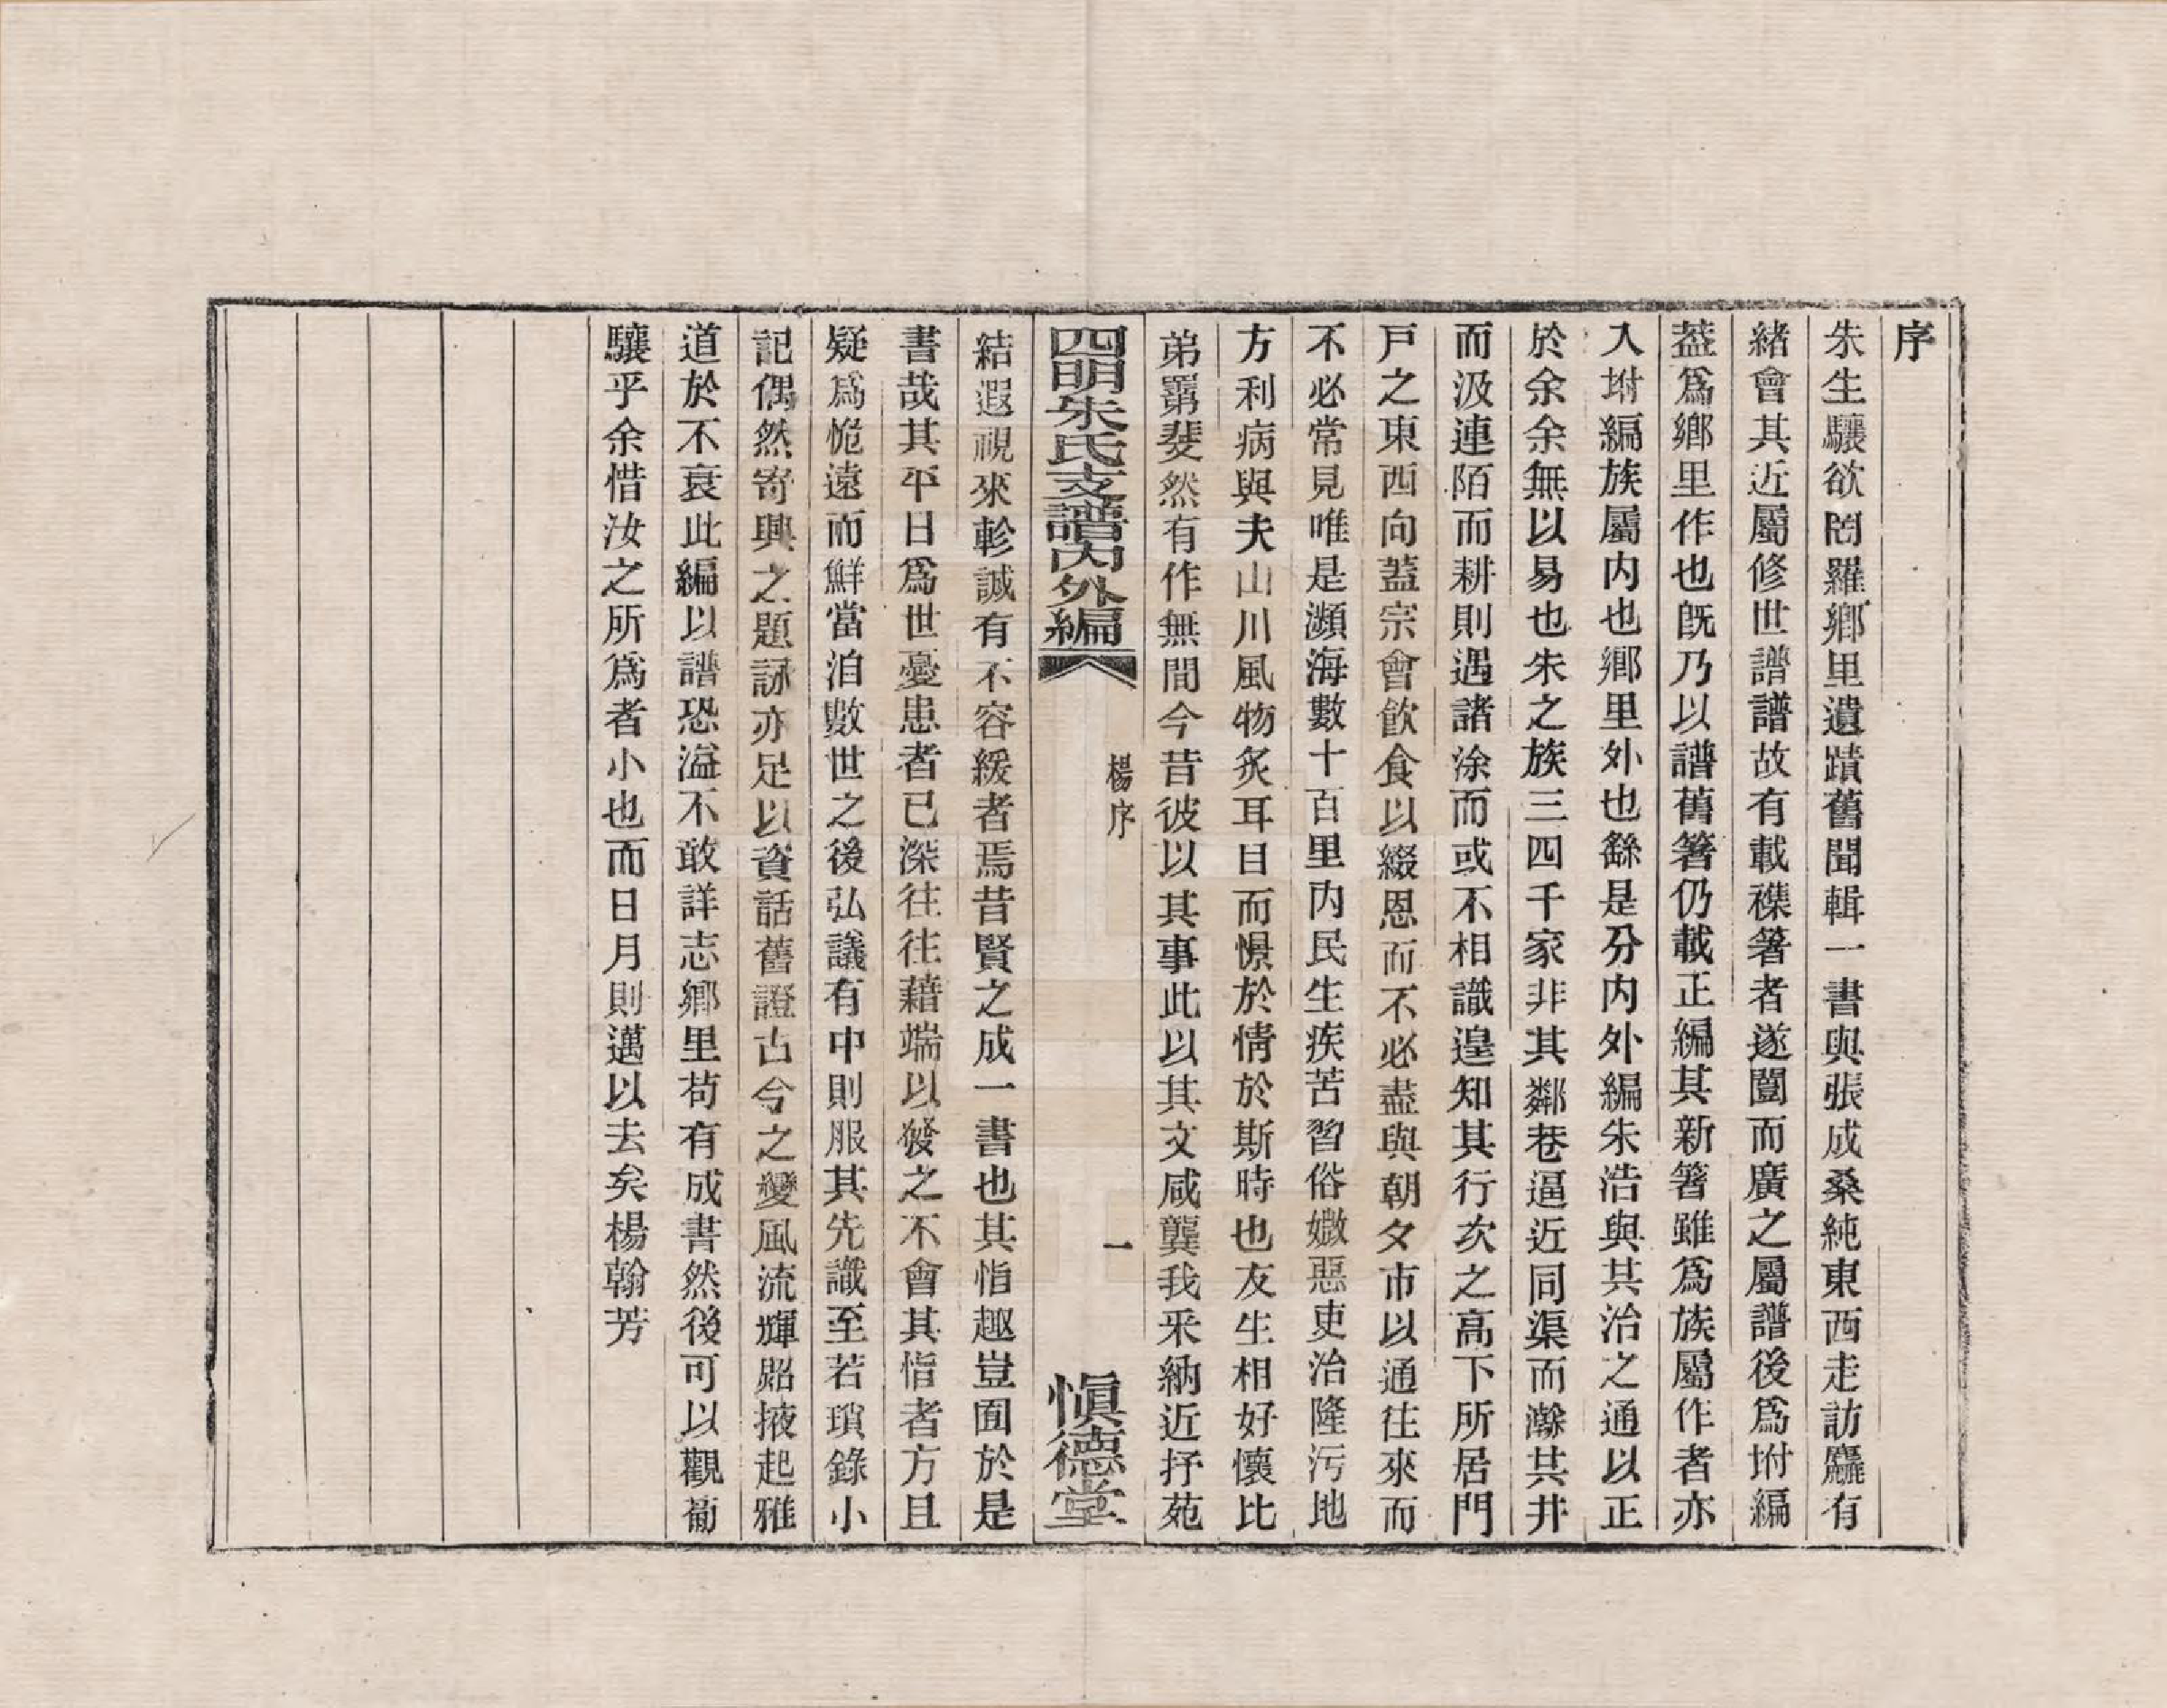 序
朱生驤欲网羅鄉里遺蹟舊聞輯一書與張成桑純東西走訪麤有
緒會其近屬修世譜譜故有載襍箸者遂闓而廣之屬譜後爲坿編
葢爲鄉里作也旣乃以譜舊箸仍載正編其新箸雖爲族屬作者亦
入坿編族屬内也鄉里外也繇是分内外編朱浩與其治之通以正
於余余無以易也朱之族三四千家非其鄰巷逼近同渠而瀿其井
而汲連陌而耕則遇諸涂而或不相識遑知其行次之高下所居門
戸之東西向蓋宗會飮食以綴恩而不必盡與朝夕市以通往來而
不必常見唯是瀕海數十百里内民生疾苦習俗媺惡吏治隆污地
方利病與夫山川風物炙耳目而憬於情於斯時也友生相好懷比
弟羸斐然有作無間今昔彼以其事此以其文咸龔我采納近抒菀
四明朱氏支譜内外編
楊序
一
愼德堂
結遐視來軫誠有不容緩者焉昔賢之成一書也其恉趣豈囿於是
書哉其平日爲世憂患者已深往往藉端以發之不會其恉者方且
疑爲恑遠而鮮當洎數世之後弘議有中則服其先識至若瑣錄小
記偶然寄興之題詠亦足以資話舊證古今之變風流輝照掖起雅
道於不衰此編以譜恐溢不敢詳志鄉里苟有成書然後可以觀葡
驤乎余惜汝之所爲者小也而日月則邁以去矣楊翰芳